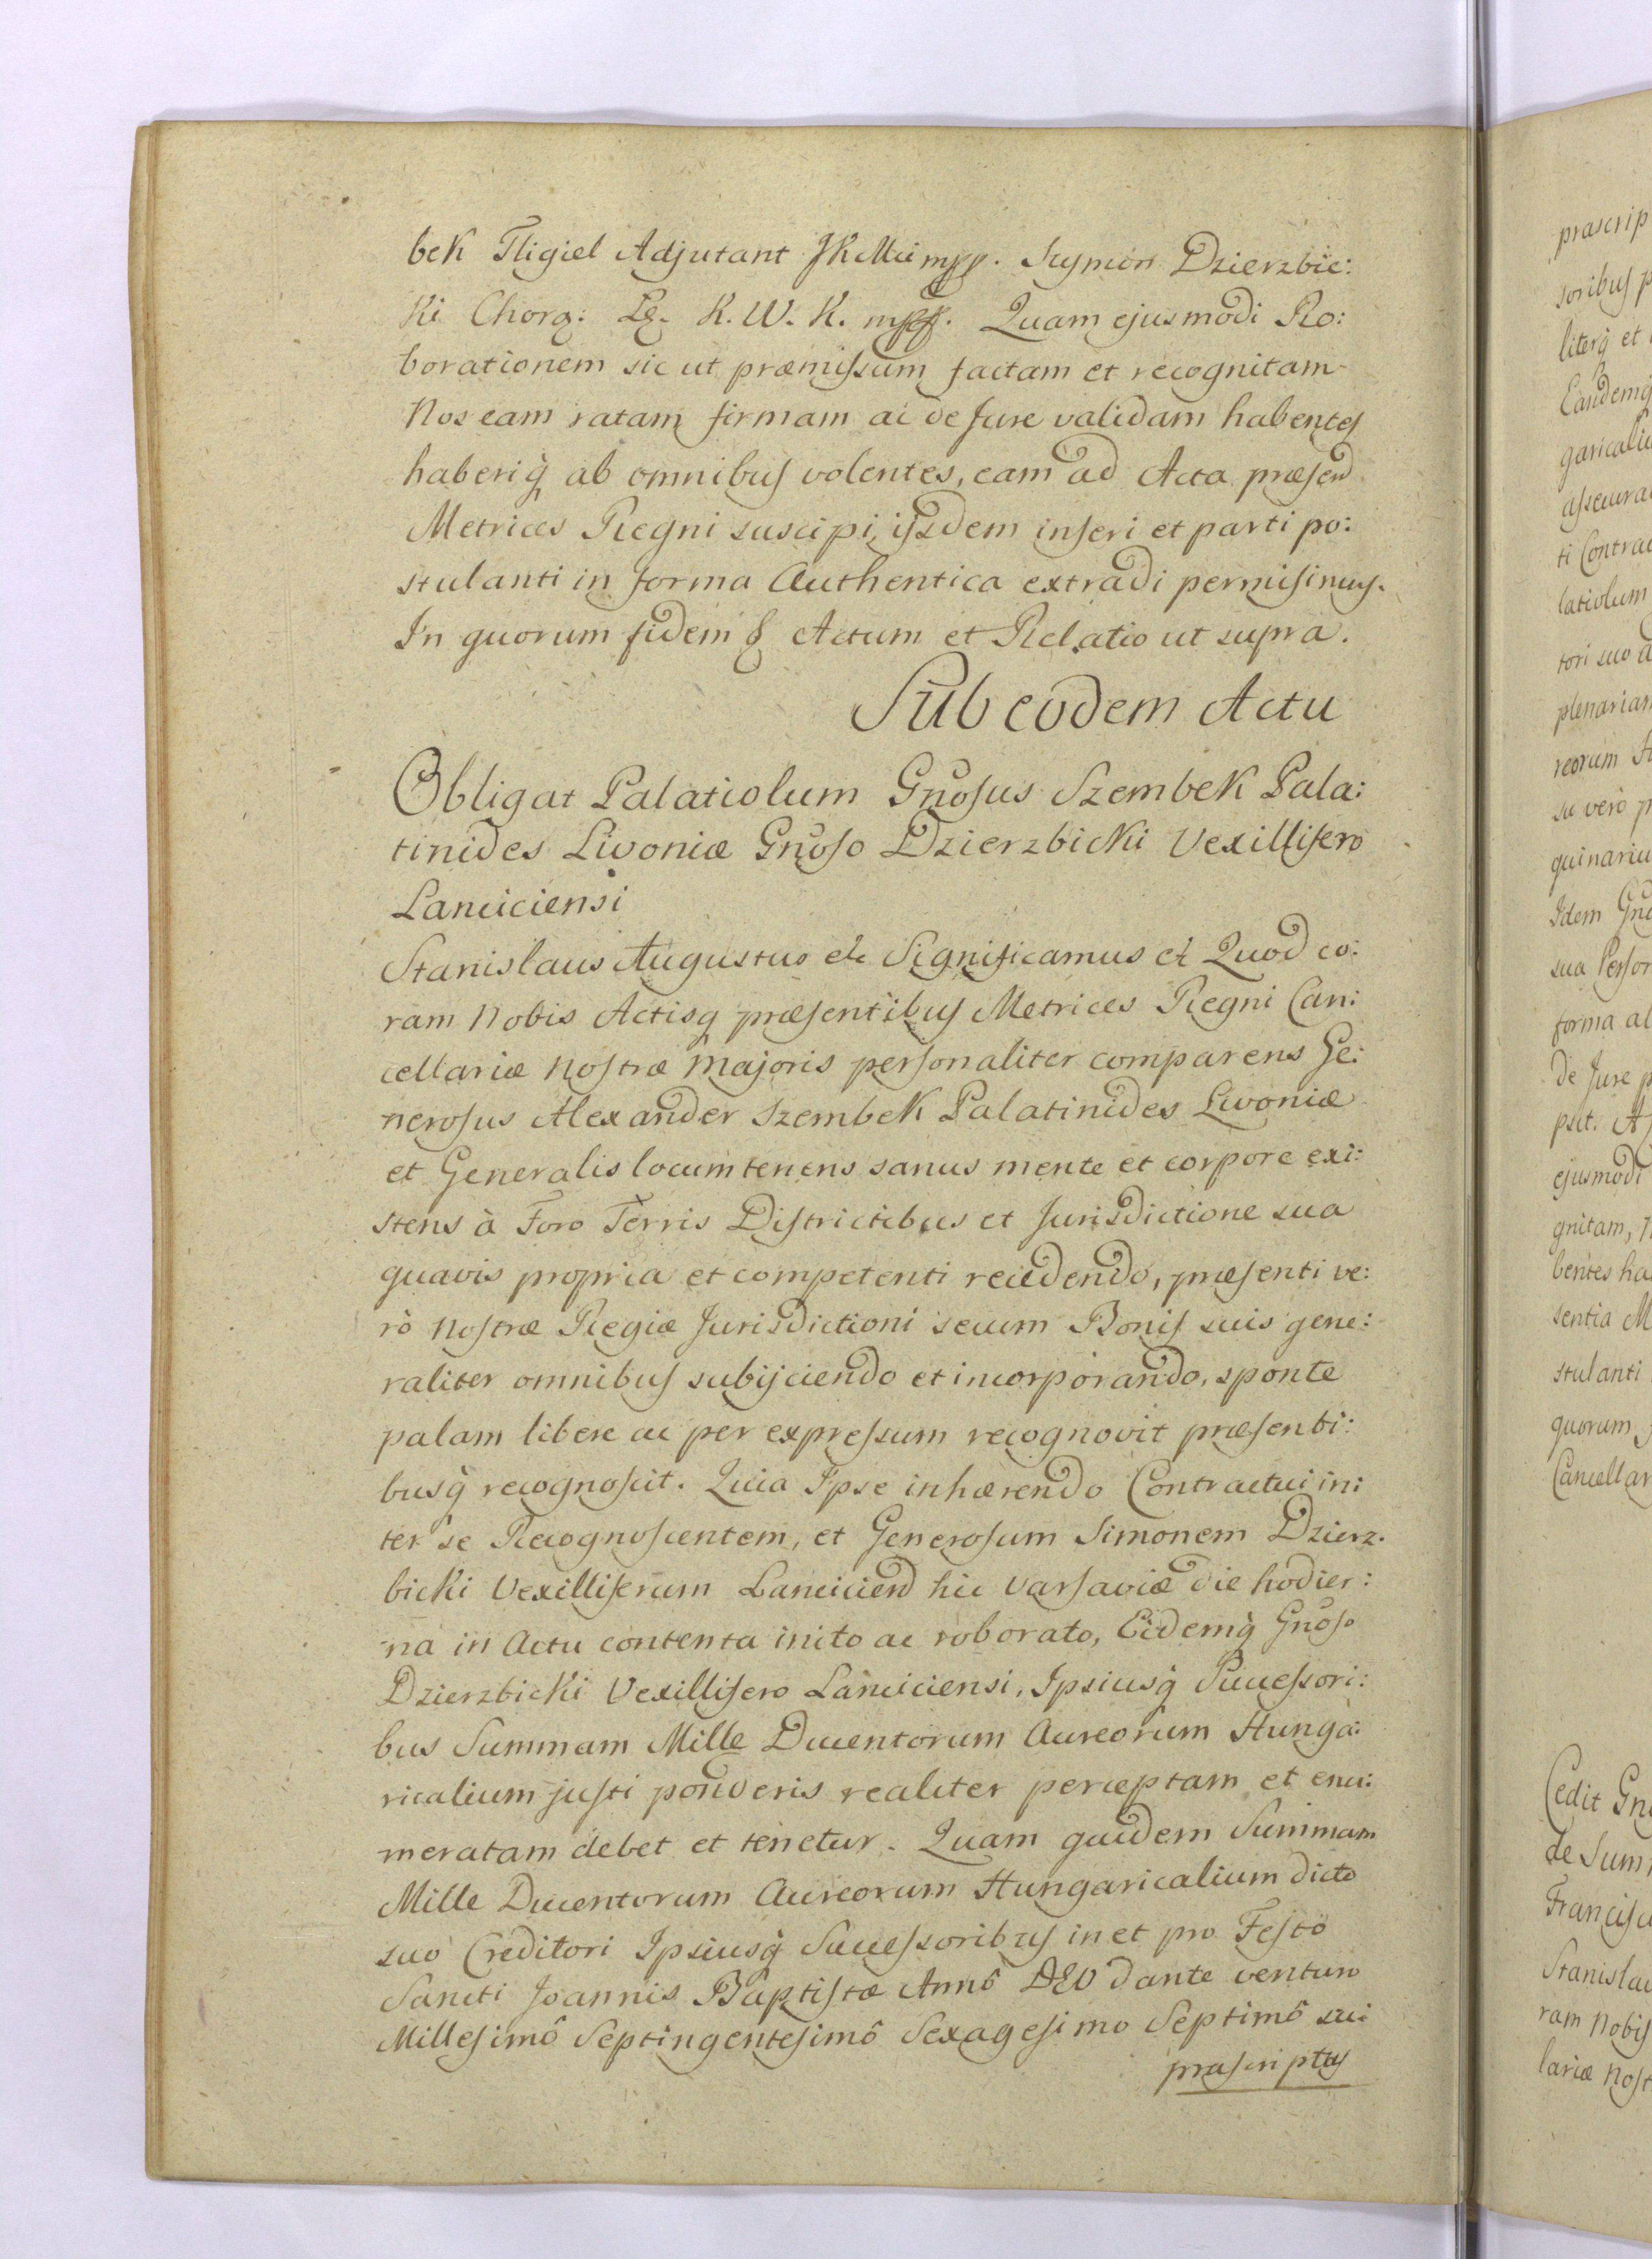 bek Fligiel Adjutant JKMci mpp. Szymon Dzierzbic:
ki Chorą: Łę. K. W. K. mpp. Quam ejusmodi Ro:
borationem sic ut præmissum factam et recognitam
Nos eam ratam firmam ac de Jure validam habentes
haberiq́ ab omnibus volentes, eam ad Acta præsend
Metrices Regni suscipi, ijsdem inseri et parti po:
stulanti in forma Authentica extradi permisimus.
In quorum fidem & Actum et Relatio ut supra.
Sub eodem Actu
Obligat Palatiolum Gnosus Szembek Pala:
tinides Livoniæ Gnoso Dzierzbicki Vexillifero
Lanciciensi
Stanislaus Augustus etc Significamus etc Quod co:
ram Nobis Actisq præsentibus Metrices Regni Can:
cellariæ Nostræ Majoris personaliter comparens Ge:
nerosus Alexander Szembek Palatinides Livoniæ
et Generalis locumtenens sanus mente et corpore exi:
stens à Foro Terris Districtibus et Jurisdictione sua
quavis propria et competenti recedendo, præsenti ve:
rò Nostræ Regiæ Jurisdictioni secum Bonis suis gene:
raliter omnibus subijciendo et incorporando, sponte
palam libere ac per expressum recognovit præsenti:
busq́ recognoscit. Quia Ipse inhærendo Contractui in:
ter se Recognoscentem, et Generosum Simonem Dzierz.
bicki Vexilliferum Lanciciend hic Varsaviæ die hodier:
na in Actu contenta inito ac roborato, Eidemq́ Gnoso
Dzierzbicki Vexillifero Lanciciensi, Ipsiusq́ Successori:
bus Summam Mille Ducentorum Aureorum Hunga:
ricalium justi ponderis realiter perceptam et enu:
meratam debet et tenetur. Quam quidem Summam
Mille Ducentorum Aureorum Hungaricalium dicto
suo Creditori Ipsiusq́ Successoribus in et pro Festo
Sancti Joannis Baptistæ Annô DEO dante venturo
Millesimô Septingentesimô Sexagesimo Septimô sui
præscriptus
præscrip
soribus p
literq́ et
Eandemq́
garicaliu
assecura
ti Contrac
latiolum
tori suo a
plenariam
reorum Hu
su verò p
quinariu
Idem Gno
sua Person
forma al
de Jure p
psit. A
ejusmodi
gnitam, N
bentes ha
sentia M
stulanti
quorum f
Cancellar
Cedit Gno
de Summ
Francisc
Stanislau
ram Nobis
lariæ Nost